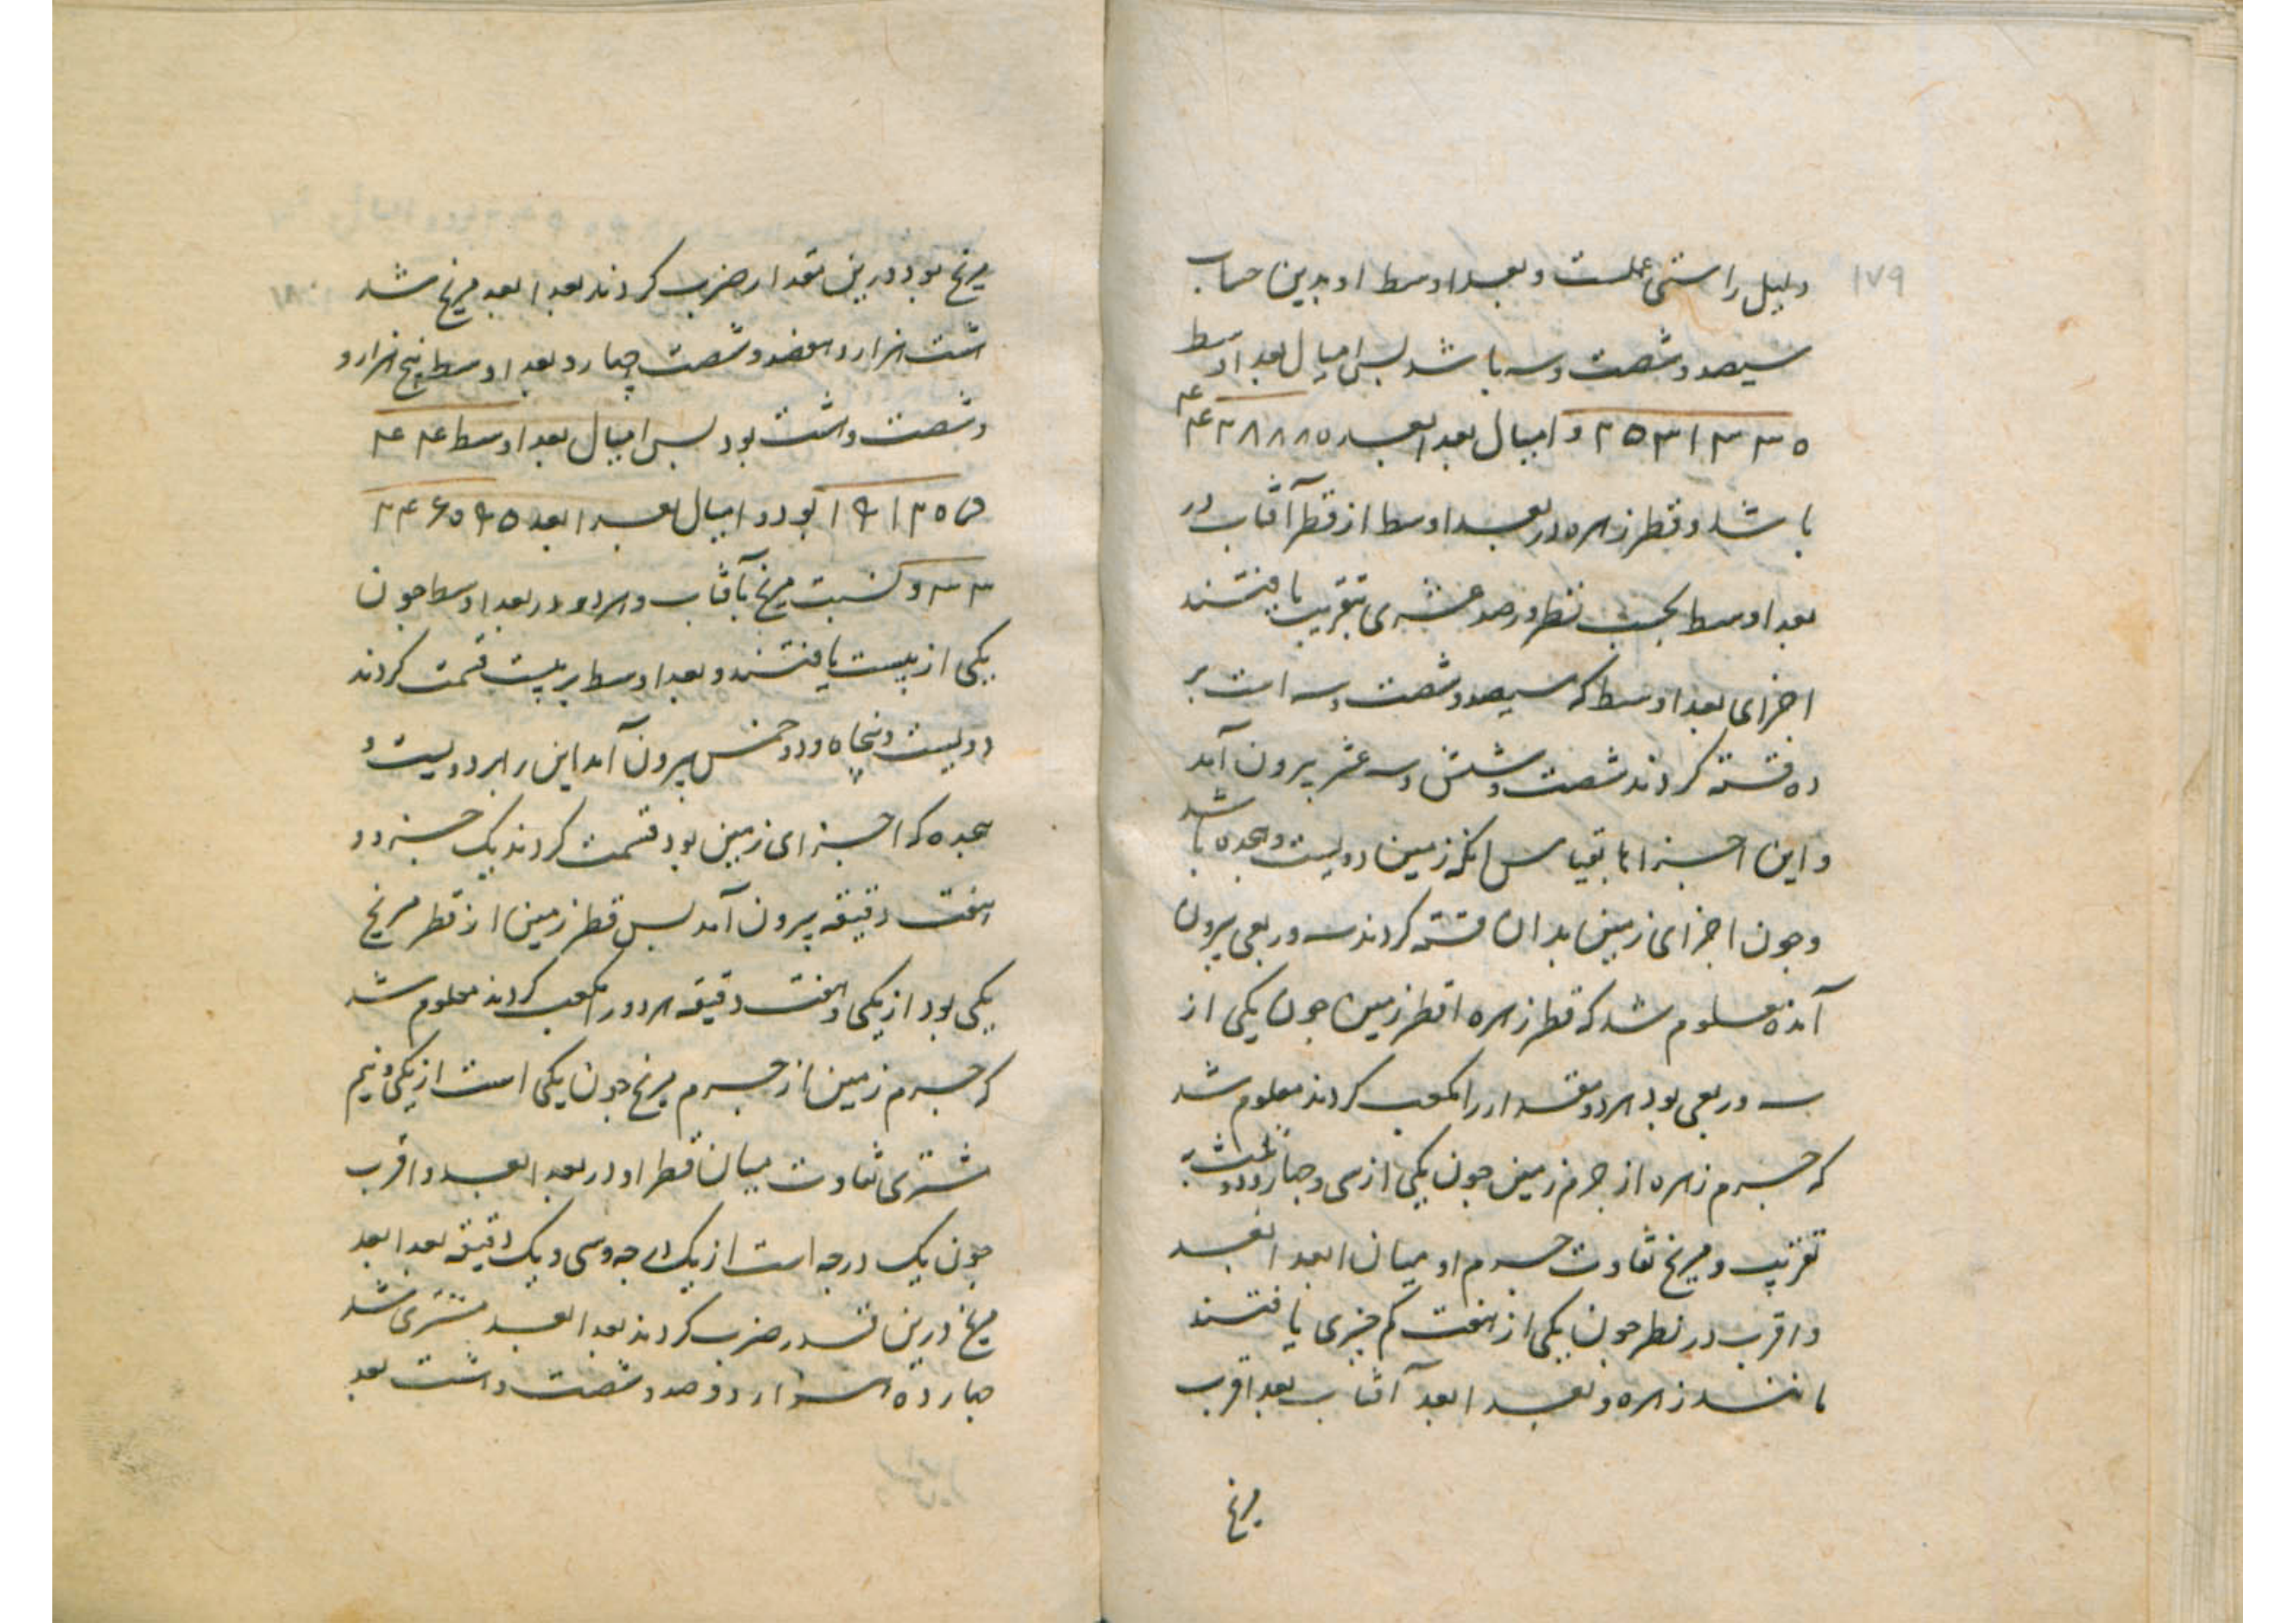 ۱۷۹
دلیل راستی عملست و بعد اوسط او بدین حساب
سیصد و شصت و سه باشد پس امیال بعد اوسط
و امیال بعد ابعد
باشد و قطر زهره در بعد اوسط از قطر آفتاب در
بعد اوسط بحسب نظر و رصد عشری بتقریب یافتند
اجزای بعد اوسط که سیصد و شصت و سه است بر
ده قسمة کردند شصت و شش و سه عشر بیرون آمد
و این اجزا بقیاس انکه زمین دویست و هجده باشد
و جون اجزای زمین بدان قسمة کردند سه و ربعی بیرون
آمد معلوم شد که قطر زهره از قطر زمین جون یکی از
سه و ربعی بود هر دو مقدار را مکعب کردند معلوم شد
که جرم زهره از جرم زمین جون یکی از سی و جهار و دو ثلث به
تقریب و مریخ تفاوت جرم او میان ابعد ابعد
و اقرب در نظر جون یکی از هفت کم جیزی یافتند
مانند زهره و بعد ابعد آفتاب بعد اقرب
مریخ
مریخ بود درین مقدار ضرب کردند بعد ابعد مریخ شد
هشت هزار و هفصد و شصت و چهار و بعد اوسط پنج هزار و
و شصت و هشت بود پس امیال بعد اوسط
بود و امیال بعد ابعد
و نسبت مریخ بآفتاب و هر دو در بعد اوسط جون
یکی از بیست یافتند و بعد اوسط بر بیست قسمت کردند
دویست و پنجاه و دو خمس بیرون آمد این را بر دویست و
هجده که اجزای زمین بود قسمت کردند یک جزء و
هفت دقیقه بیرون آمد پس قطر زمین از قطر مریخ
یکی بود از یکی و هفت دقیقه هر دو را مکعب کردند معلوم شد
که جرم زمین از جرم مریخ جون یکی است از یکی و نیم
مشتری تفاوت میان قطر او در بعد ابعد و اقرب
جون یک درجه است از یک درجه و سی و یک دقیقه بعد ابعد
مریخ درین قدر ضرب کردند بعد ابعد مشتری شد
جهارده هزار و دوصد و شصت و هشت بعد